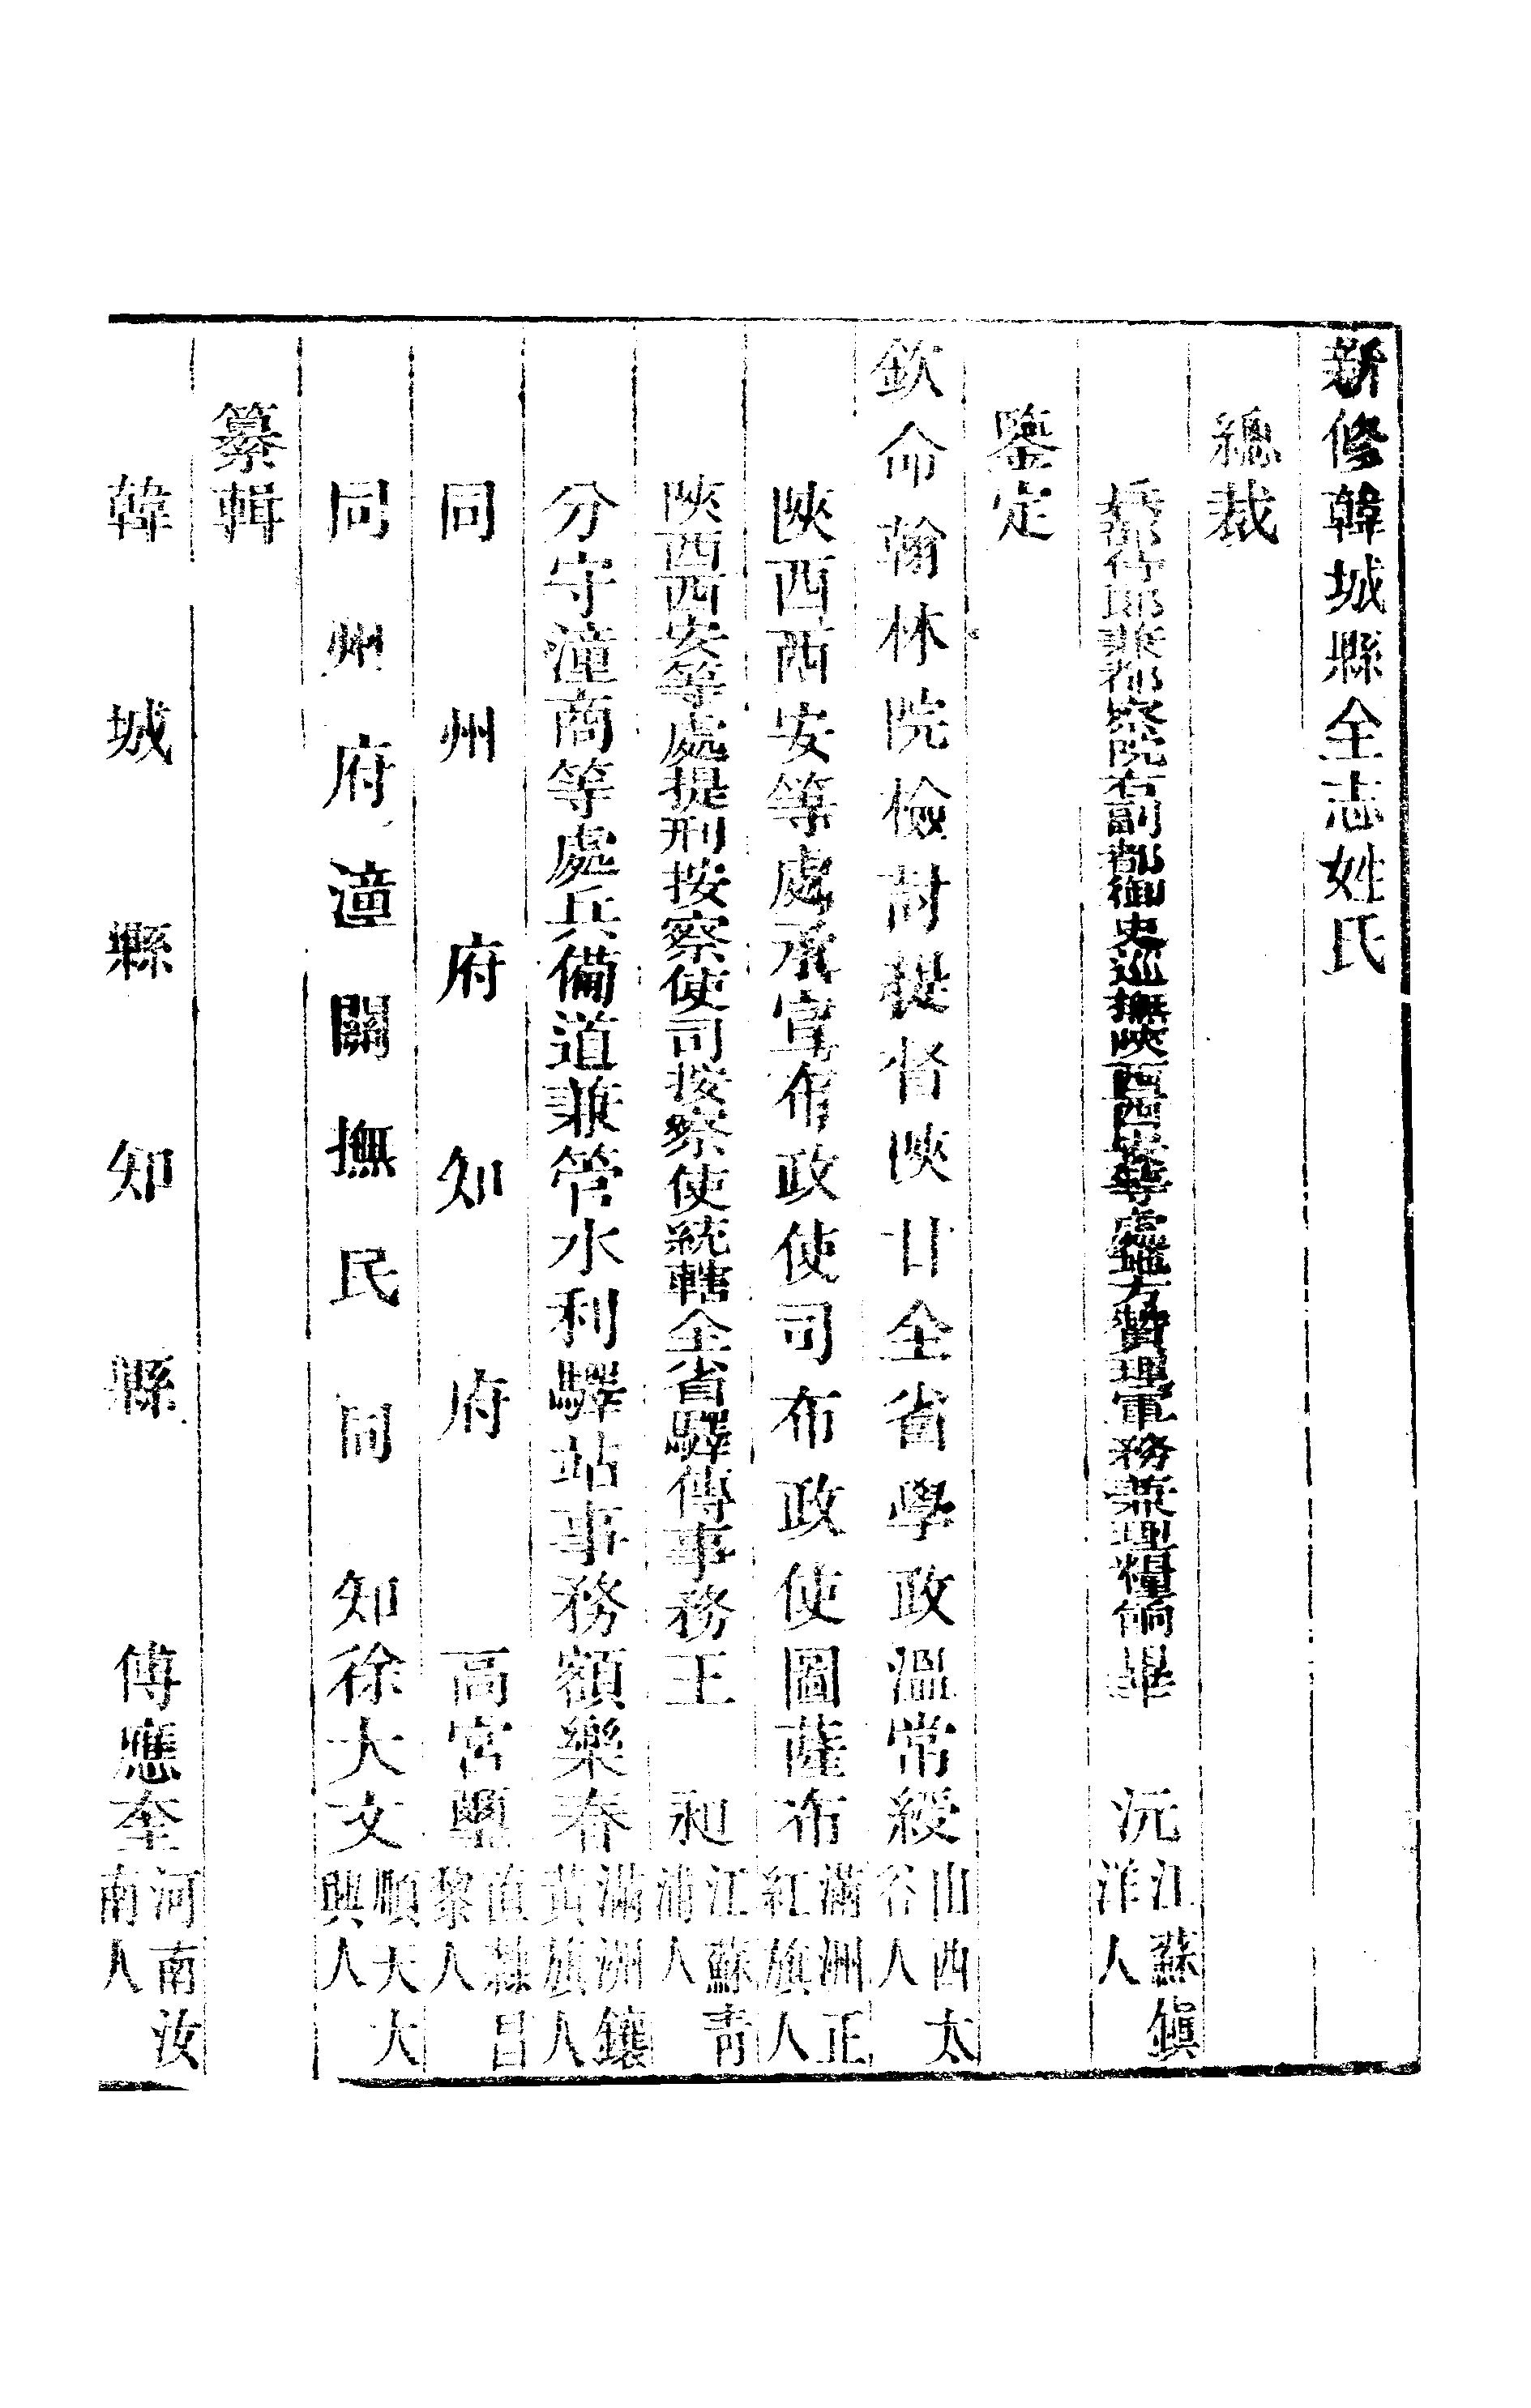 新修韓城縣全志姓氏
總裁
兵部侍郎兼都察院右副都御史巡撫陝西西安等處地方贊理軍務兼理糧餉畢沅江蘇鎭洋人
鑒定
欽命翰林院檢討提督陝甘全省學政溫常綬山西太谷人
陝西西安等處承宣布政使司布政使圖薩布滿洲正紅旗人
陝西西安等處提刑按察使司按察使統轄全省驛傳事務王昶江蘇靑浦人
分守潼商等處兵備道兼管水利驛站事務額樂春滿洲鑲黃旗人
同州府知府高宮壐直隸昌黎人
同州府潼關撫民同知徐大文順天大興人
纂輯
韓城縣知縣傅應奎河南汝南人